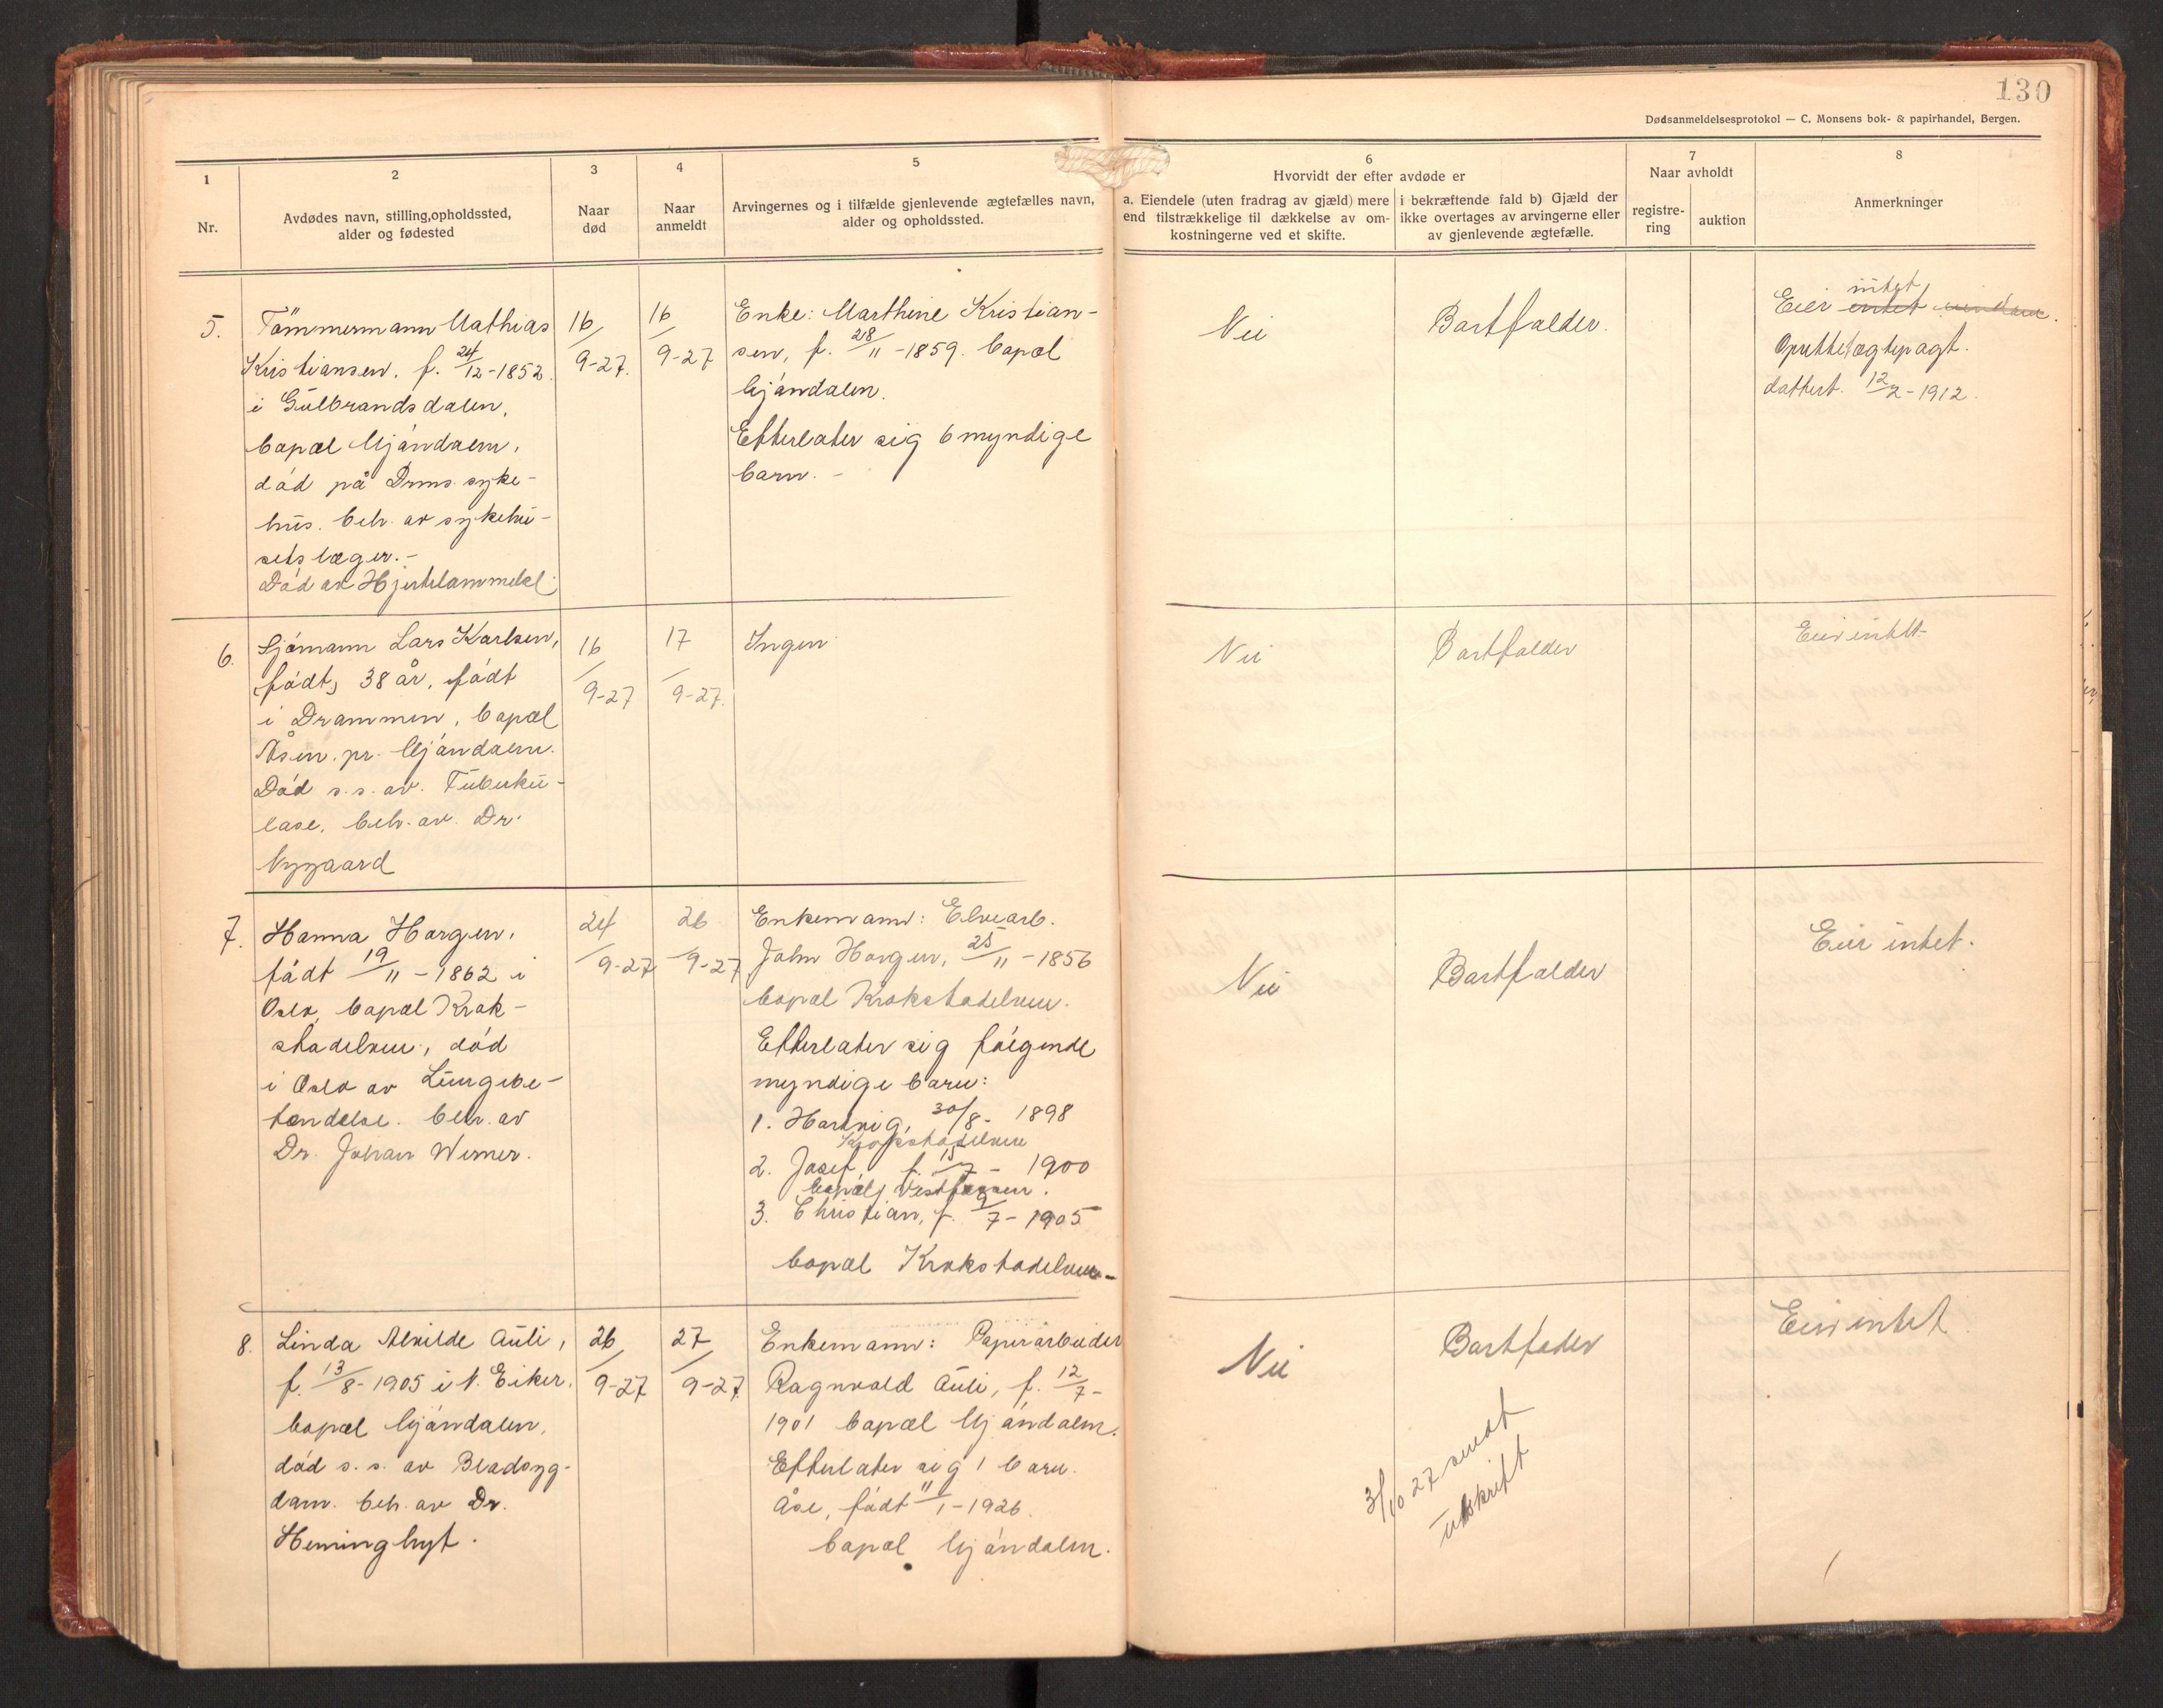 130
Dødsanmeldelsesprotokol — C. Monsens bok- & papirhandel, Bergen.
1
Nr.
2
Avdødes navn, stilling, opholdssted,
alder og fødested
3
Naar
død
4
Naar
anmeldt
5
Arvingernes og i tilfælde gjenlevende ægtefælles navn,
alder og opholdssted.
6
Hvorvidt der efter avdøde er
a. Eiendele (uten fradrag av gjæld) mere
end tilstrækkelige til dækkelse av om-
kostningerne ved et skifte.
i bekræftende fald b) Gjæld der
ikke overtages av arvingerne eller
av gjenlevende ægtefælle.
7
Naar avholdt
registre-
ring
auktion
8
Anmerkninger
5.
Tømmermann Mathias
Kristiansen. f. 24/12-1852.
i Gulbrandsdalen,
bopæl Mjøndalen,
død på Drms. syke-
hus. beh. av sykehu-
sets læger.-
Død av Hjertelammelse.
16/9-27.
16/9-27
Enke: Marthine Kristian-
sen, f. 28/11-1859. bopæl
Mjøndalen.
Efterlater sig 6 myndige
barn. -
Nei
Bortfalder.
intet
Eier intet
dattert. 12/2-1912.
6.
Sjømann Lars Karlsen,
(født) 38 år, født
i Drammen, bopæl
Åsen. pr. Mjøndalen.
Død s.s. av. Tuberku-
lose. beh. av. Dr.
Nygaard
16/9-27
17/9-27.
Ingen
Nei
Bortfalder
Eier intet.
7.
Hanna Horgen,
født 19/11-1862 i
Oslo, bopæl Krok-
stadelven, død
i Oslo av Lungebe-
tændelse. beh. av
Dr. Johan Werner.
24/9-27
26/9-27
Enkemann: Elvearb.
John Horgen, 25/11-1856
bopæl Krokstadelven.
Efterlater sig følgende
myndige barn:
1. Hartvig, 30/8- 1898
Krokstadelven
2. Josef, f. 15/7- 1900
bopæl Vestfossen.
3. Christian, f. 9/7-1905
bopæl Krokstadelven-
Nei
Bortfalder
Eier intet.
8.
Linda Alvilde Auli,
f. 13/8-1905 i N. Eiker.
bopæl Mjøndalen,
død s.s. av Blodsyg-
dom. beh. av Dr.
Heminghyt.
26/9-27
27/9-27.
Enkemann: Papirarbeider
Ragnvald Auli, f. 12/7-
1901 bopæl Mjøndalen.
Efterlater sig 1 barn.
Åse, født 11/1-1926.
bopæl Mjøndalen.
Nei
Bortfaler
3/10 27 sendt
utskrift
Eier intet